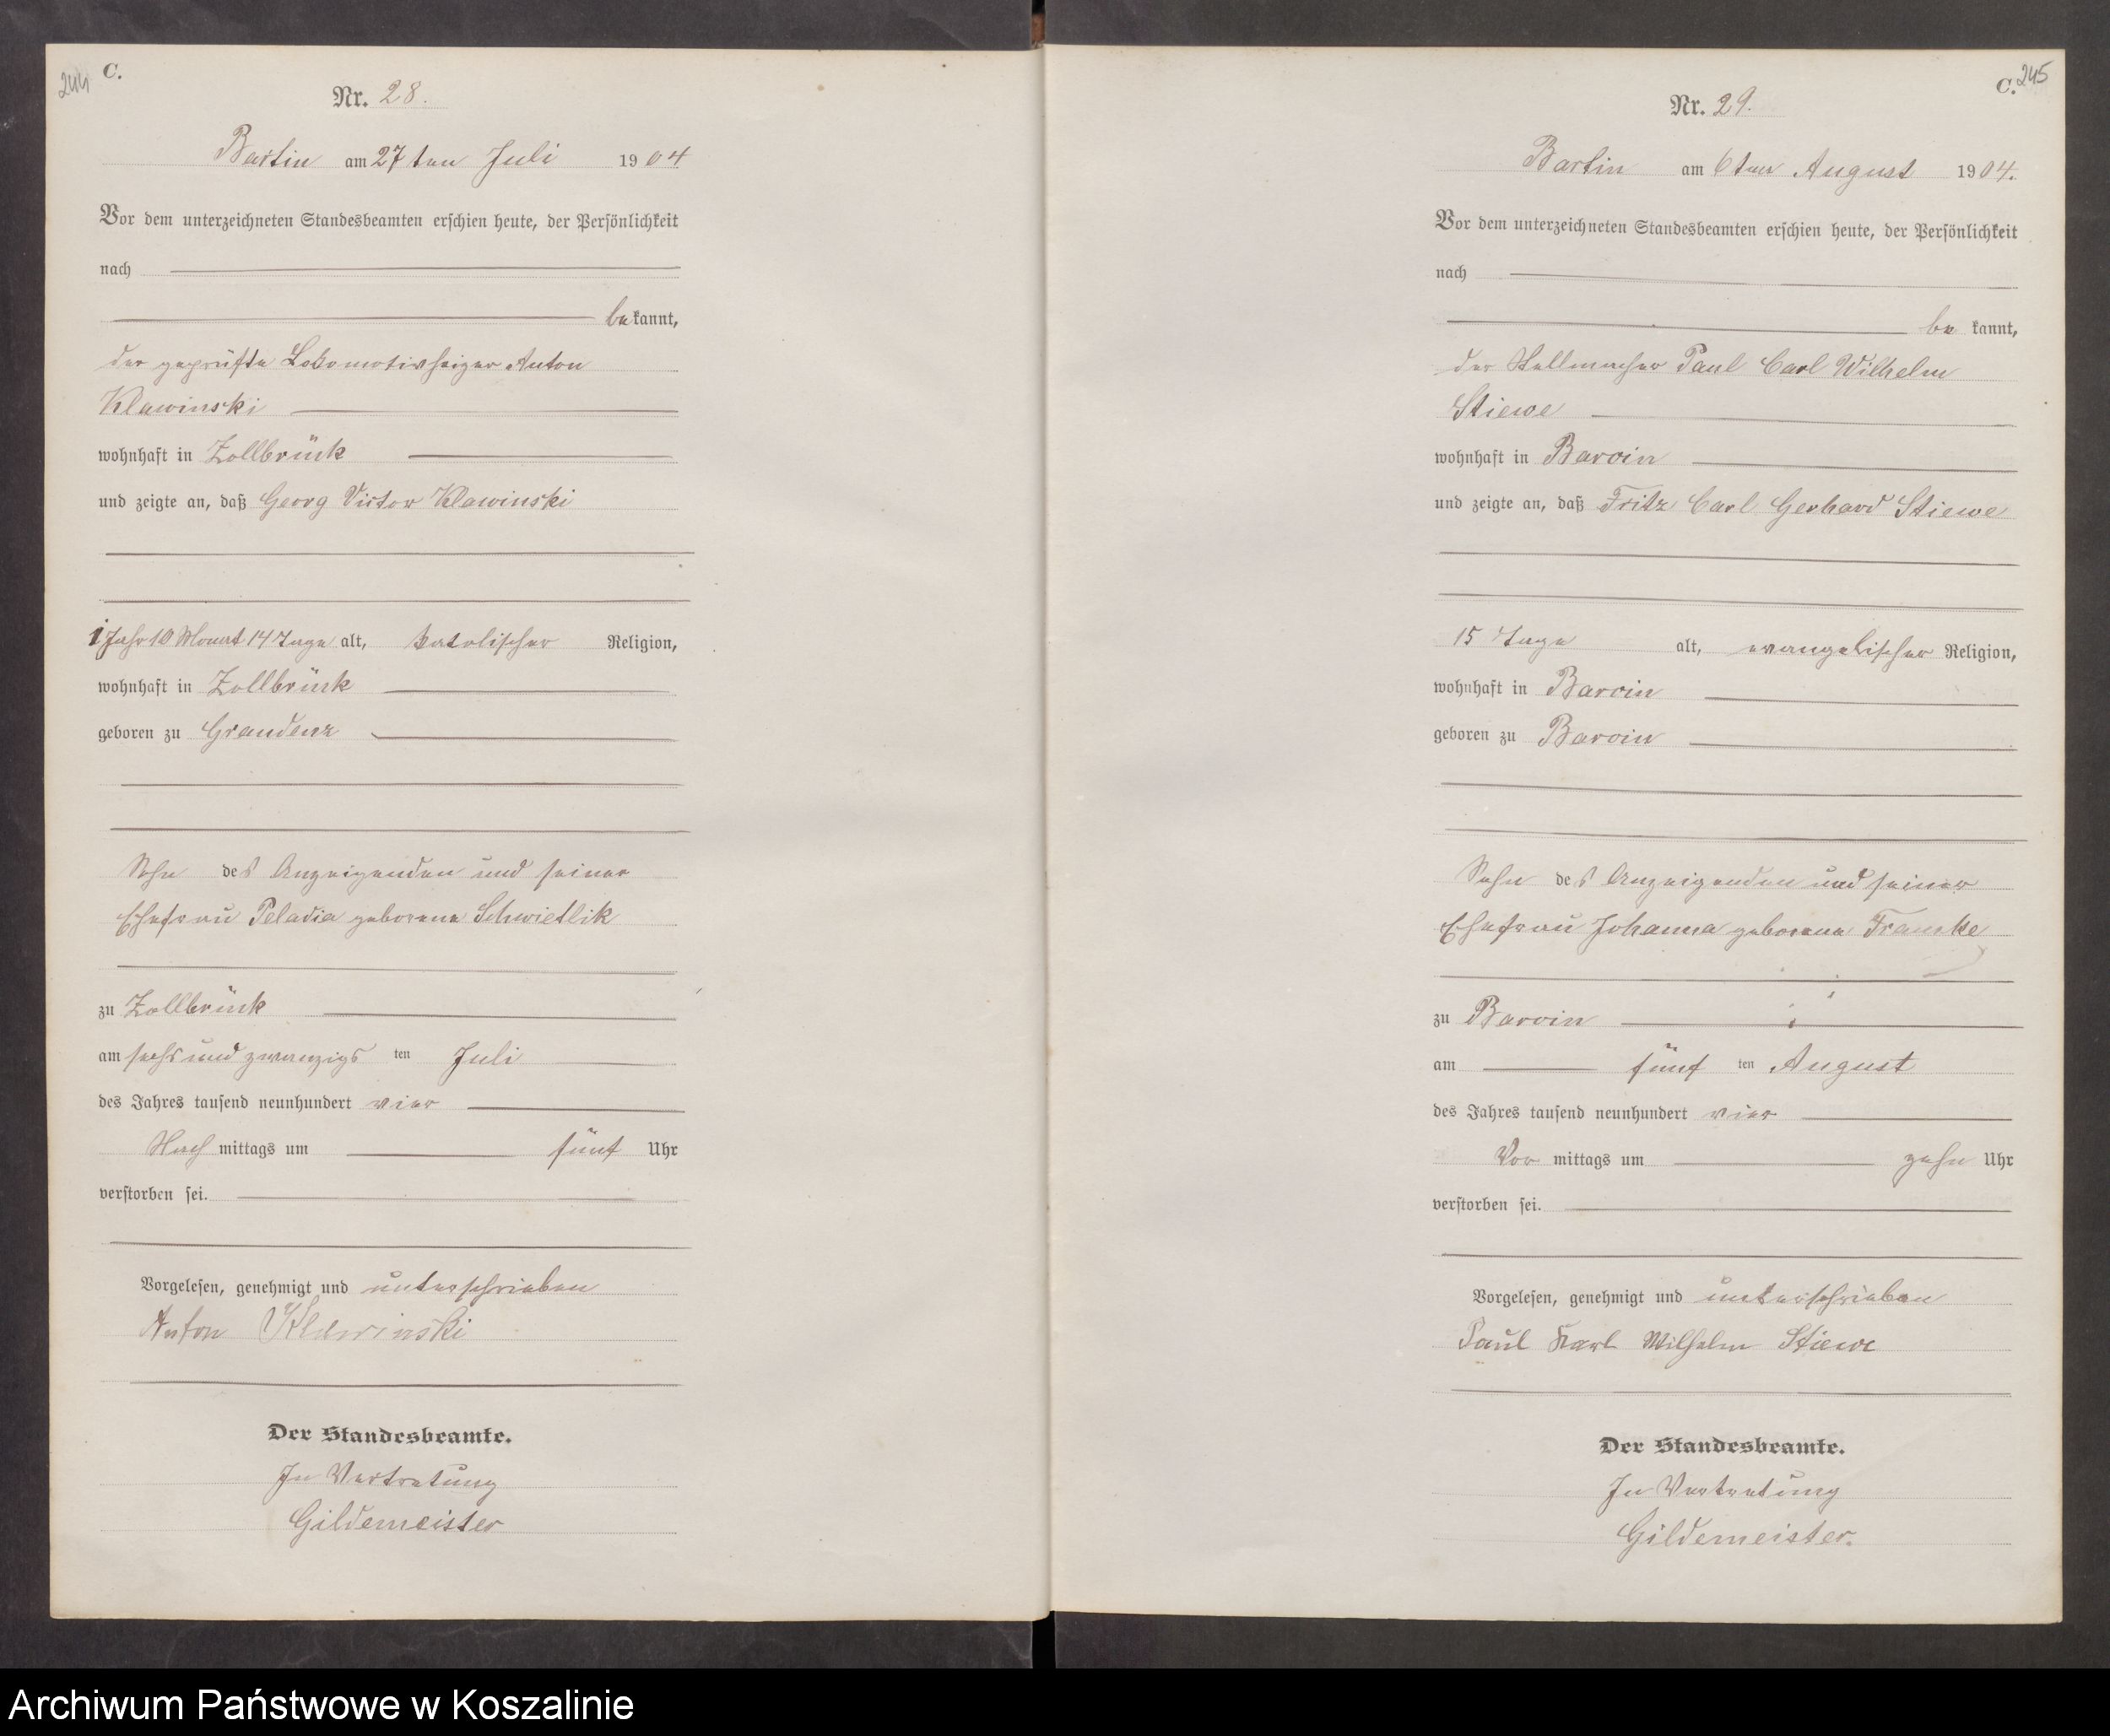 244
C.
Nr. 28.
Bartin am 27 ten Juli 1904
Vor dem unterzeichneten Standesbeamten erschien heute, der Persönlichkeit
nach
bekannt,
der geprüfte Lokomotivheizer Anton
Klawinski
wohnhaft in Zollbrück
und zeigte an, daß Georg Victor Klawinski
1 Jahr 10 Monat 14 Tage alt, katolischer Religion,
wohnhaft in Zollbrück
geboren zu Graudenz
Sohn des Anzeigenden und seiner
Ehefrau Peladia geborene Schwietlik
zu Zollbrück
am sechs und zwanzigs ten Juli
des Jahres tausend neunhundert vier
Nach mittags um fünf Uhr
verstorben sei.
Vorgelesen, genehmigt und unterschrieben
Anton Klawinski
Der Standesbeamte.
In Vertretung
Gildemeister
C. 245
Nr. 29.
Bartin am 6 ten August 1904.
Vor dem unterzeichneten Standesbeamten erschien heute, der Persönlichkeit
nach
be kannt,
der Stellmacher Paul Carl Wilhelm
Stiewe
wohnhaft in Barvin
und zeigte an, daß Fritz Carl Gerhard Stiewe
15 Tage alt, evangelischer Religion,
wohnhaft in Barvin
geboren zu Barvin
Sohn des Anzeigenden und seiner
Ehefrau Johanna geborene Framke
zu Barvin
am fünf ten August
des Jahres tausend neunhundert vier
Vor mittags um zehn Uhr
verstorben sei.
Vorgelesen, genehmigt und unterschrieben
Paul Karl Wilhelm Stiewe
Der Standesbeamte.
In Vertretung
Gildemeister.
Archiwum Państwowe w Koszalinie